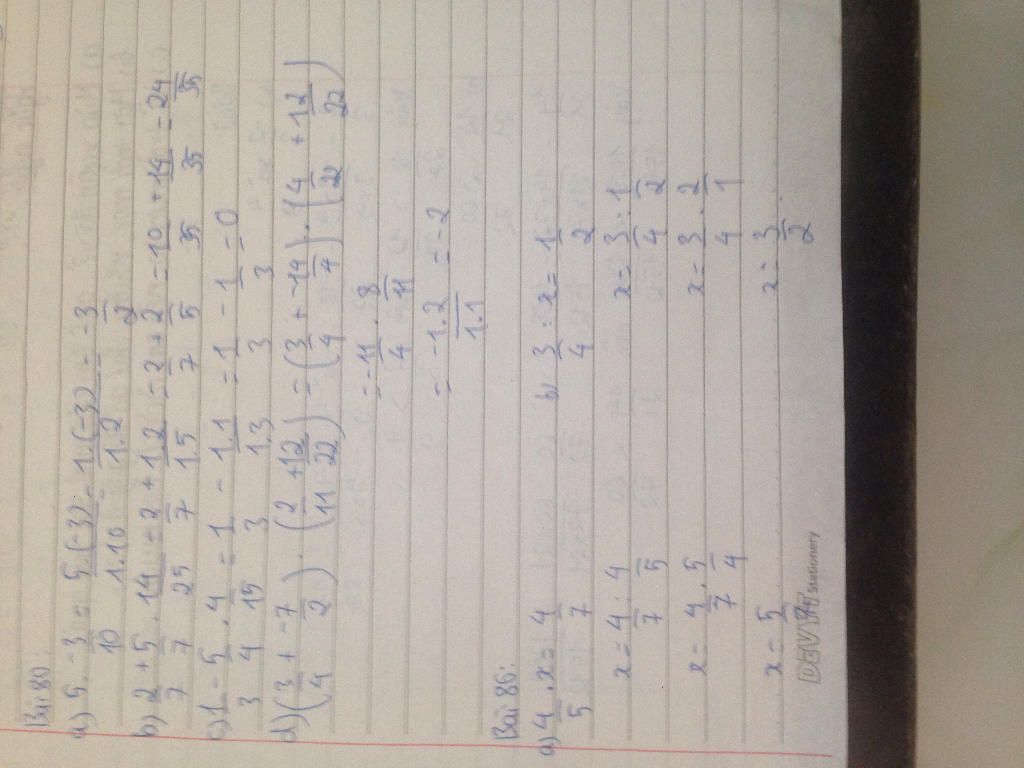 Bài 80:
a) 5 . -3/10 = 5.(-3)/1.10 = 1.(-3)/1.2 = -3/2
b) 2/7 + 5/7 . 14/25 = 2/7 + 1.2/1.5 = 2/7 + 2/5 = 10/35 + 14/35 = 24/35
c) 1/3 - 5/4 . 4/15 = 1/3 - 1.1/1.3 = 1/3 - 1/3 = 0
d) (3/4 + -7/2) . (2/11 + 12/22) = (3/4 + -14/4) . (4/22 + 12/22)
= -11/4 . 8/11
= -1.2/1.1 = -2
Bài 86:
a) 4/5 . x = 4/7 b) 3/4 : x = 1/2
x = 4/7 : 4/5 x = 3/4 : 1/2
x = 4/7 . 5/4 x = 3/4 . 2/1
x = 5/7 x = 3/2
Stationery